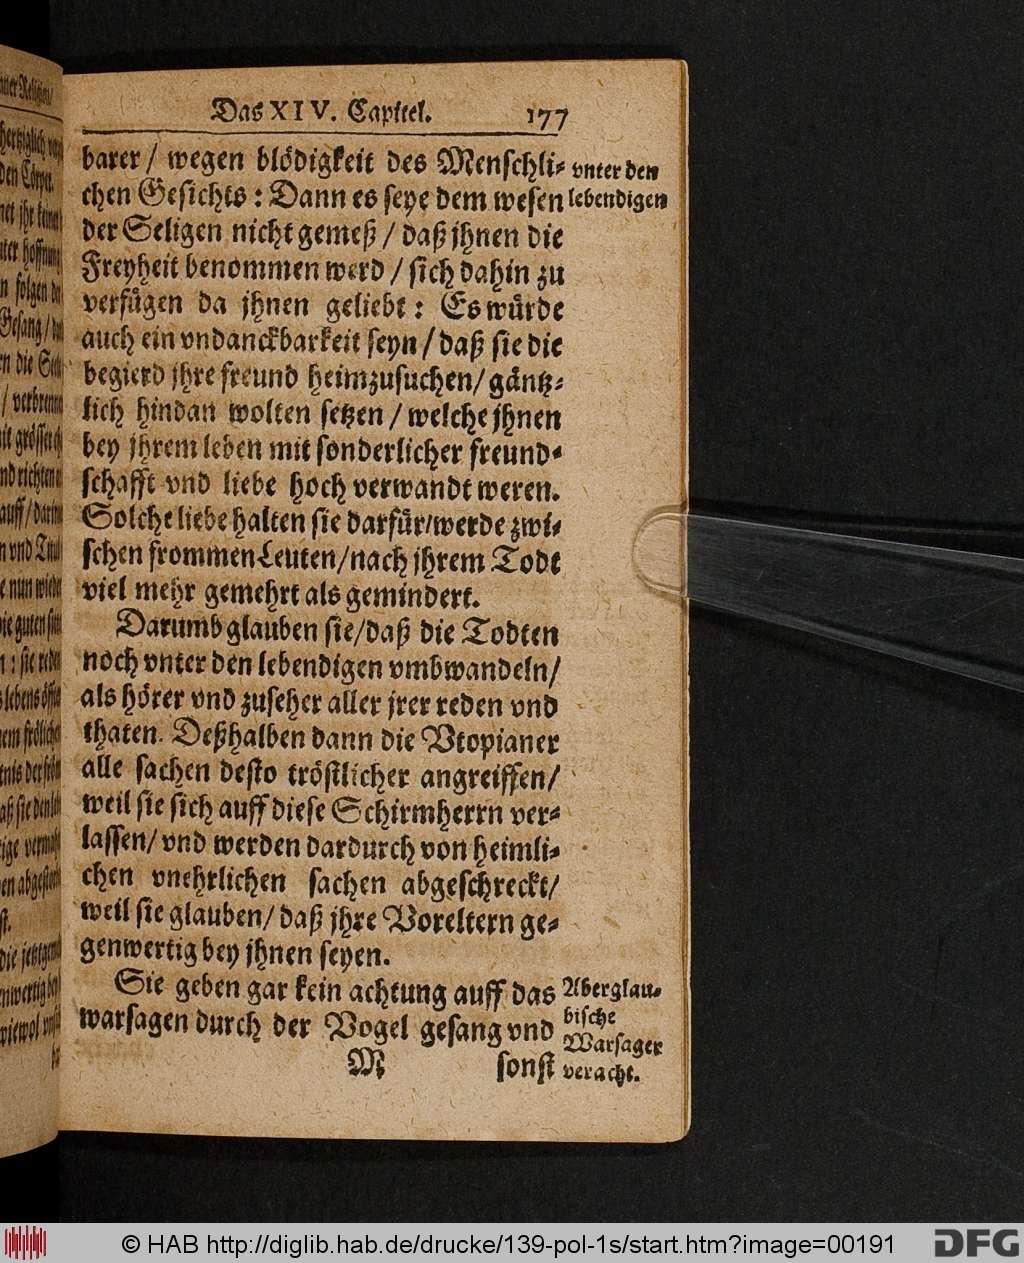 Das XIV. Capitel. 177
barer / wegen blödigkeit des Menschli-
chen Gesichts : Dann es seye dem wesen
der Seligen nicht gemeß / daß jhnen die
Freyheit benommen werd / sich dahin zu
verfügen da jhnen geliebt : Es würde
auch ein vndanckbarkeit seyn / daß sie die
begierd jhre freund heimzusuchen / gäntz-
lich hindan wolten setzen / welche jhnen
bey jhrem leben mit sonderlicher freund-
schafft vnd liebe hoch verwandt weren.
Solche liebe halten sie darfür/werde zwi-
schen frommen Leuten/nach jhrem Todt
viel mehr gemehrt als gemindert.
Darumb glauben sie/daß die Todten
noch vnter den lebendigen vmbwandeln/
als hörer vnd zuseher aller jrer reden vnd
thaten. Deßhalben dann die Vtopianer
alle sachen desto tröstlicher angreiffen/
weil sie sich auff diese Schirmherrn ver-
lassen/ vnd werden dardurch von heimli-
chen vnehrlichen sachen abgeschreckt/
weil sie glauben/ daß jhre Voreltern ge-
genwertig bey jhnen seyen.
Sie geben gar kein achtung auff das
warsagen durch der Vogel gesang vnd
M sonst
vnter den
lebendigen
Aberglau-
bische
Warsager
veracht.
© HAB http://diglib.hab.de/drucke/139-pol-1s/start.htm?image=00191
DFG